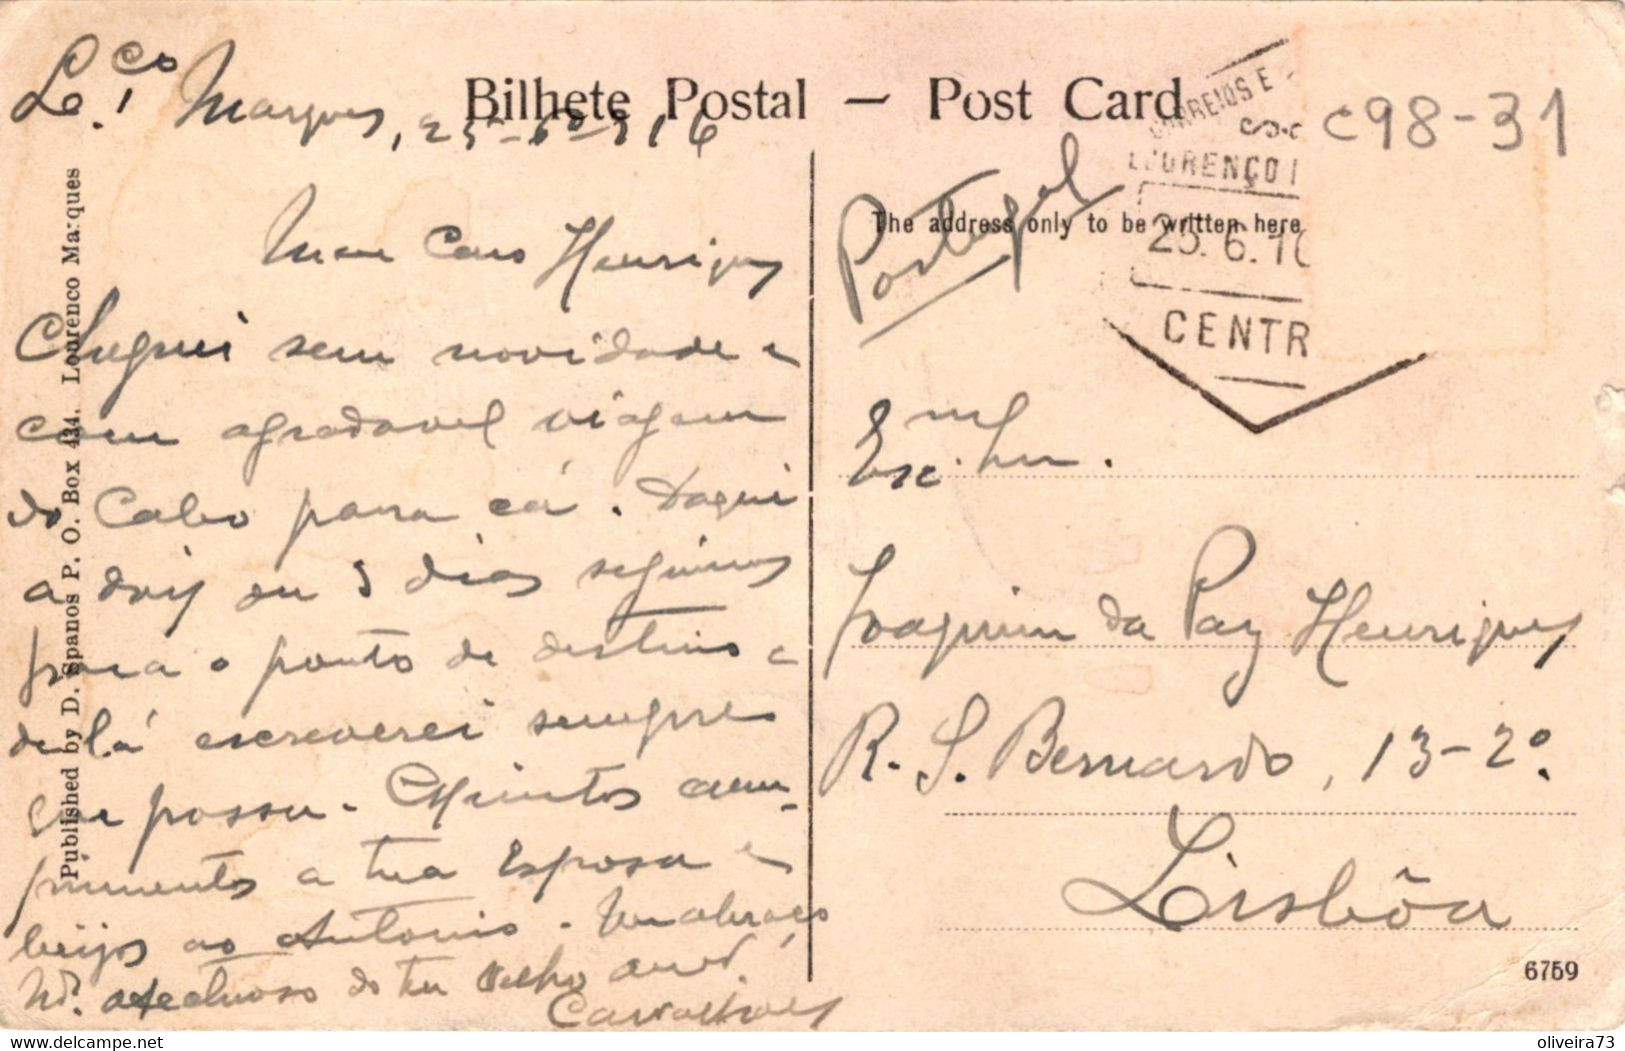 Bilhete Postal — Post Card
L.ço Marques, 25-6º-916
Meu Caro Henriques
Cheguei sem novidade e
com agradavel viagem
do Cabo para cá. Daqui
a dois ou 3 dias seguimos
para o ponto de destino e
de lá escreverei sempre
que possa. Muitos cum-
primentos a tua Esposa e
beijos ao Antonio. Um abraço
afectuoso do teu velho am.º
The address only to be written here
Portugal
C98-31
CORREIOS E
LOURENÇO
25.6.16
CENTR
Exmº Snr.
Joaquim da Paz Henriques
R. S. Bernardo, 13-2º.
Lisbôa
6759
Published by D. Spanos P. O. Box 434. Lourenco Marques
hippostcard.com
oliveira73